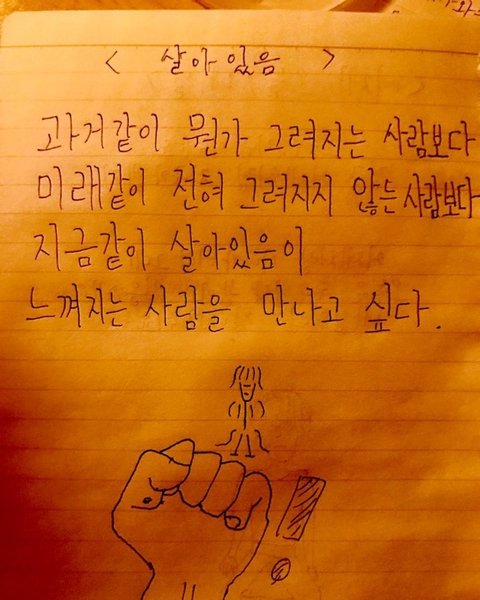 < 살아있음 >
과거같이 뭔가 그려지는 사람보다
미래같이 전혀 그려지지 않는 사람보다
지금같이 살아있음이
느껴지는 사람을 만나고 싶다.